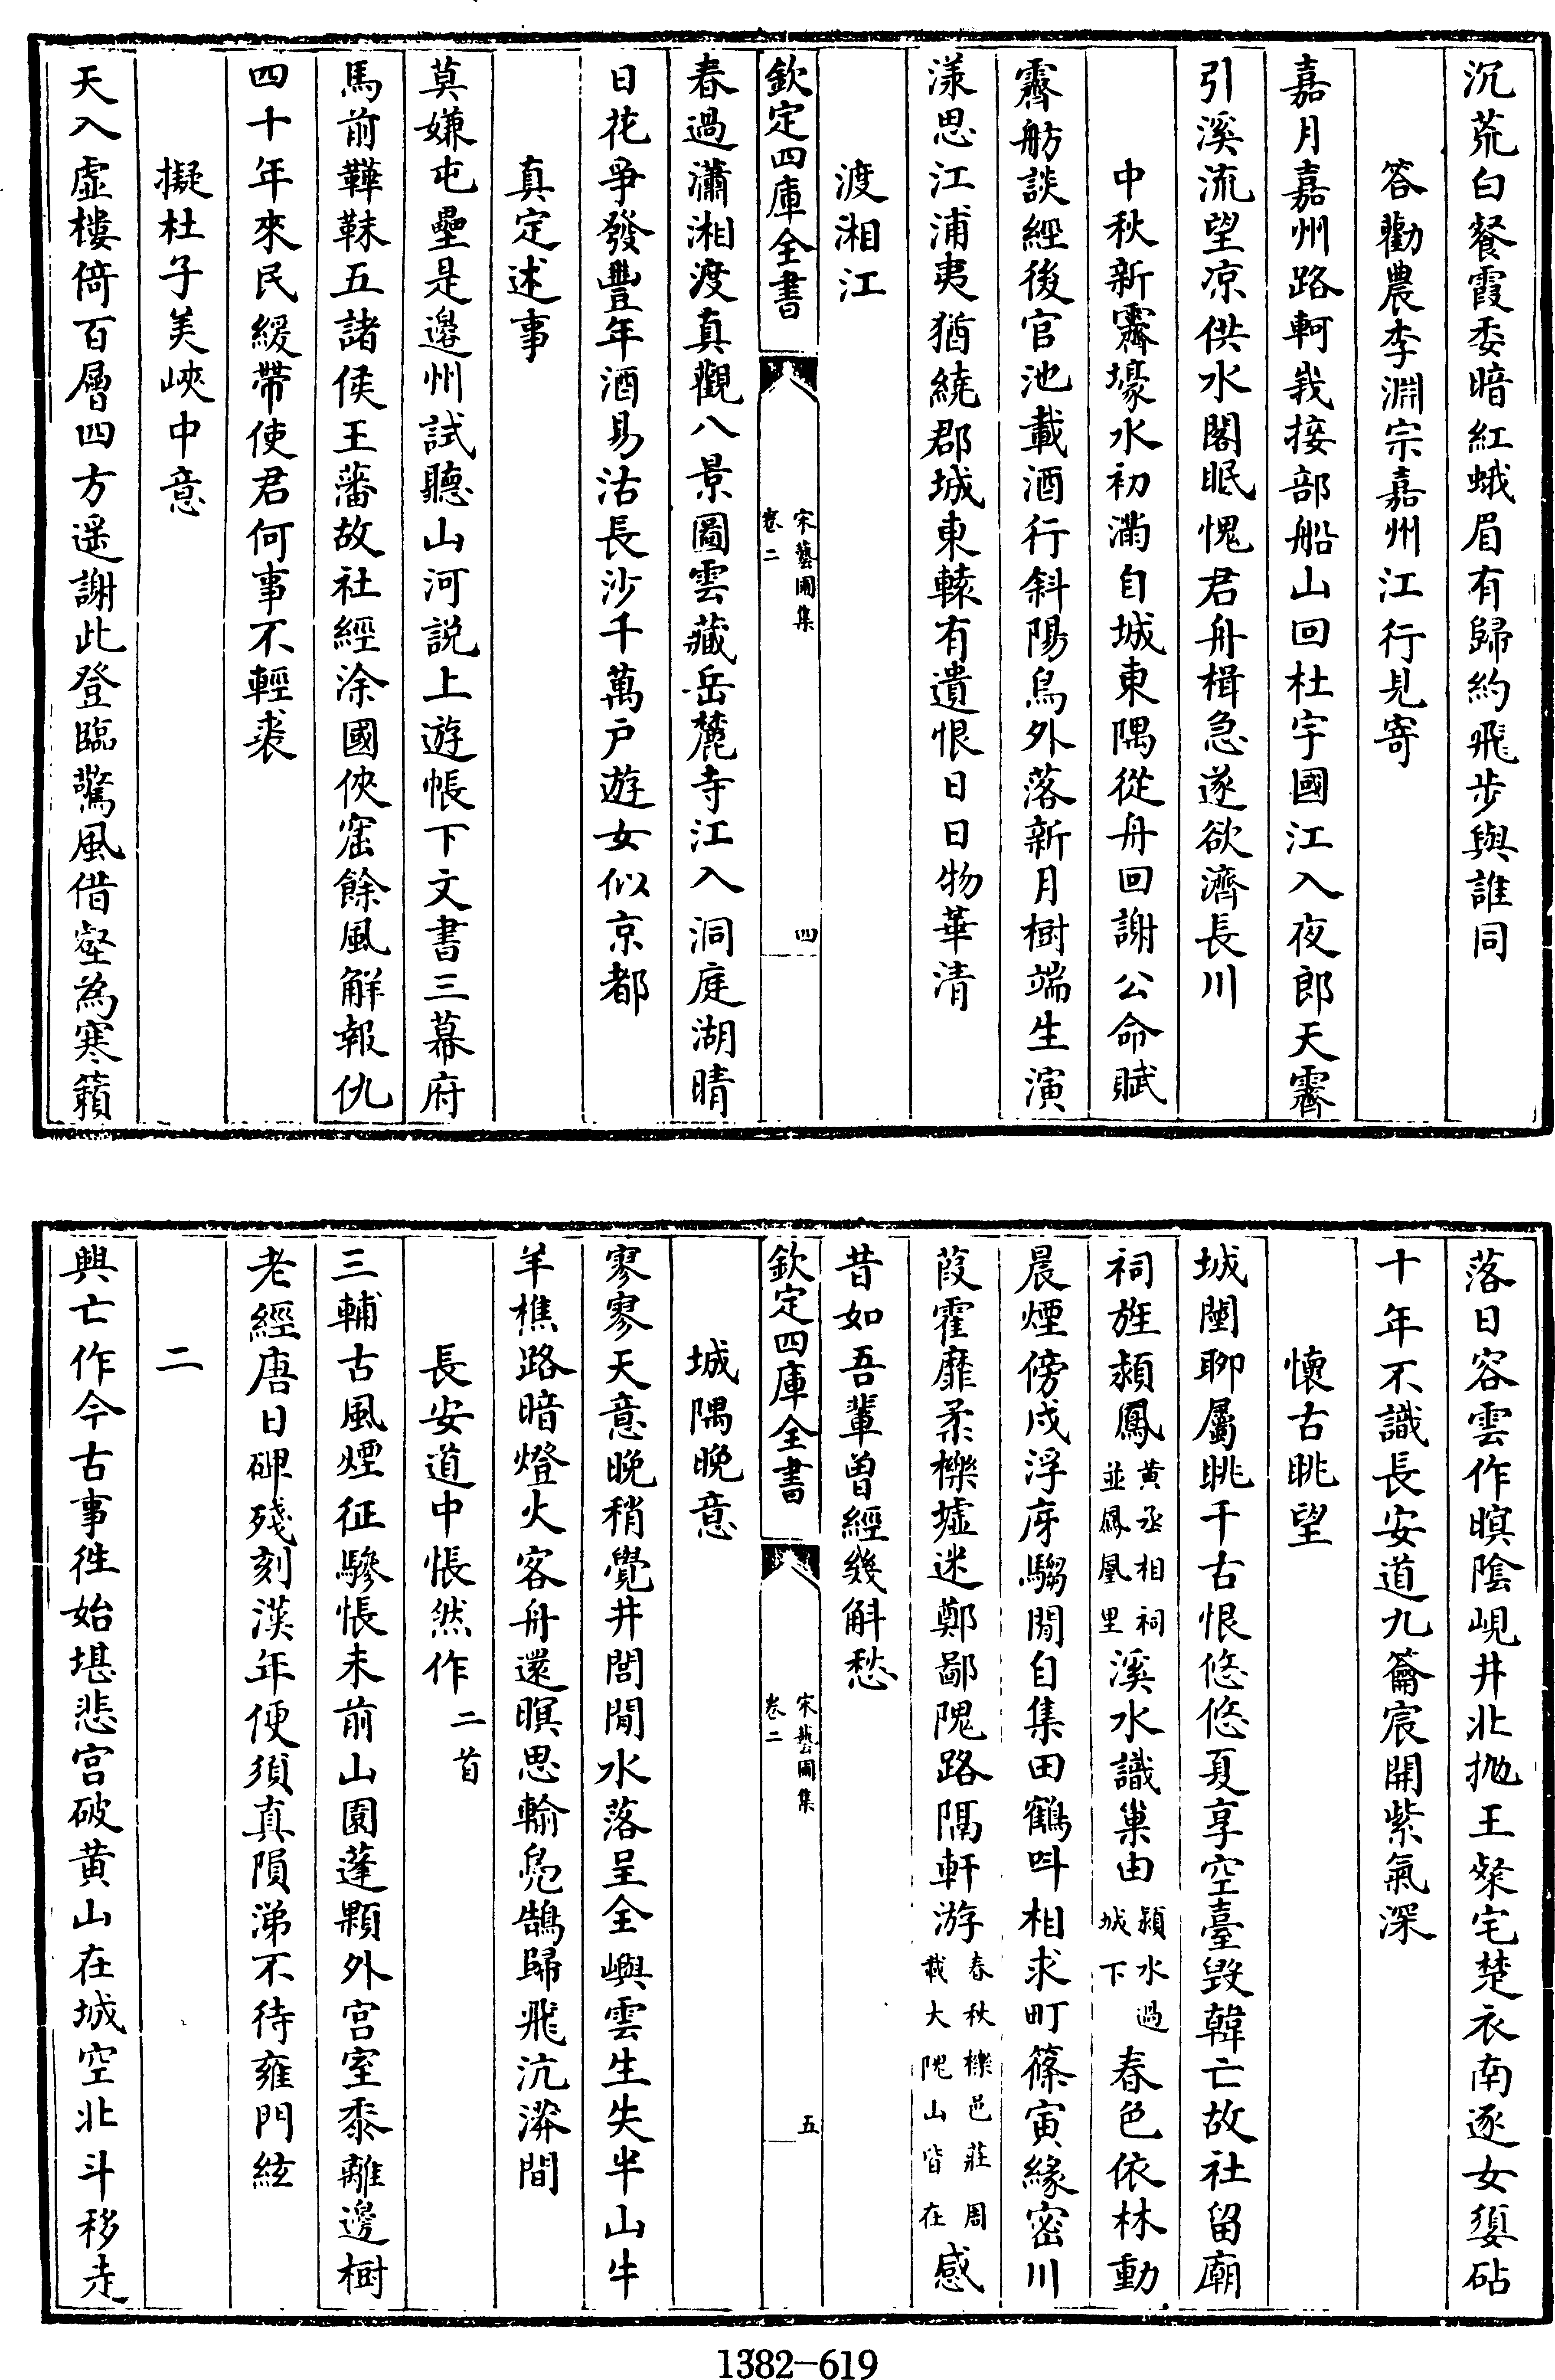 沉荒白餐霞委暗紅蛾眉有歸約飛步與誰同
答勸農李淵宗嘉州江行見寄
嘉月嘉州路軻峩接部船山回杜宇國江入夜郎天霽
引溪流望凉供水閣眠愧君舟楫急遂欲濟長川
中秋新霽壕水初滿自城東隅從舟回謝公命賦
霽舫談經後官池載酒行斜陽鳥外落新月樹端生演
漾思江浦夷猶繞郡城東轅有遺恨日日物華清
渡湘江
欽定四庫全書
宋藝圃集
卷二
四
春過瀟湘渡真觀八景圖雲藏岳麓寺江入洞庭湖晴
日花爭發豐年酒易沽長沙千萬户遊女似京都
真定述事
莫嫌屯壘是邊州試聽山河説上遊帳下文書三幕府
馬前鞾韎五諸侯王藩故社經涂國俠窟餘風解報仇
四十年來民緩帶使君何事不輕裘
擬杜子美峽中意
天入虛樓倚百層四方遥謝此登臨驚風借壑為寒籟
落日容雲作暝陰峴井北抛王粲宅楚衣南逐女嬃砧
十年不識長安道九籥宸開紫氣深
懷古眺望
城闉聊屬眺千古恨悠悠夏享空臺毁韓亡故社留廟
祠旌潁鳳黄丞相祠並鳳凰里溪水識巢由潁水過城下春色依林動
晨煙傍戍浮庌騶閒自集田鶴呌相求町篠寅緣密川
葭霍靡柔櫟墟迷鄭鄙隗路隔軒游春秋櫟邑莊周載大隗山皆在感
昔如吾輩曽經幾斛愁
欽定四庫全書
宋藝圃集
卷二
五
城隅晚意
寥寥天意晚稍覺井閭閒水落呈全嶼雲生失半山牛
羊樵路暗燈火客舟還暝思輸鳧鵠歸飛沆漭間
長安道中悵然作二首
三輔古風煙征驂悵未前山園蓬顆外宫室黍離邊樹
老經唐日碑殘刻漢年便須真隕涕不待雍門絃
二
興亡作今古事徃始堪悲宫破黄山在城空北斗移走
1382-619